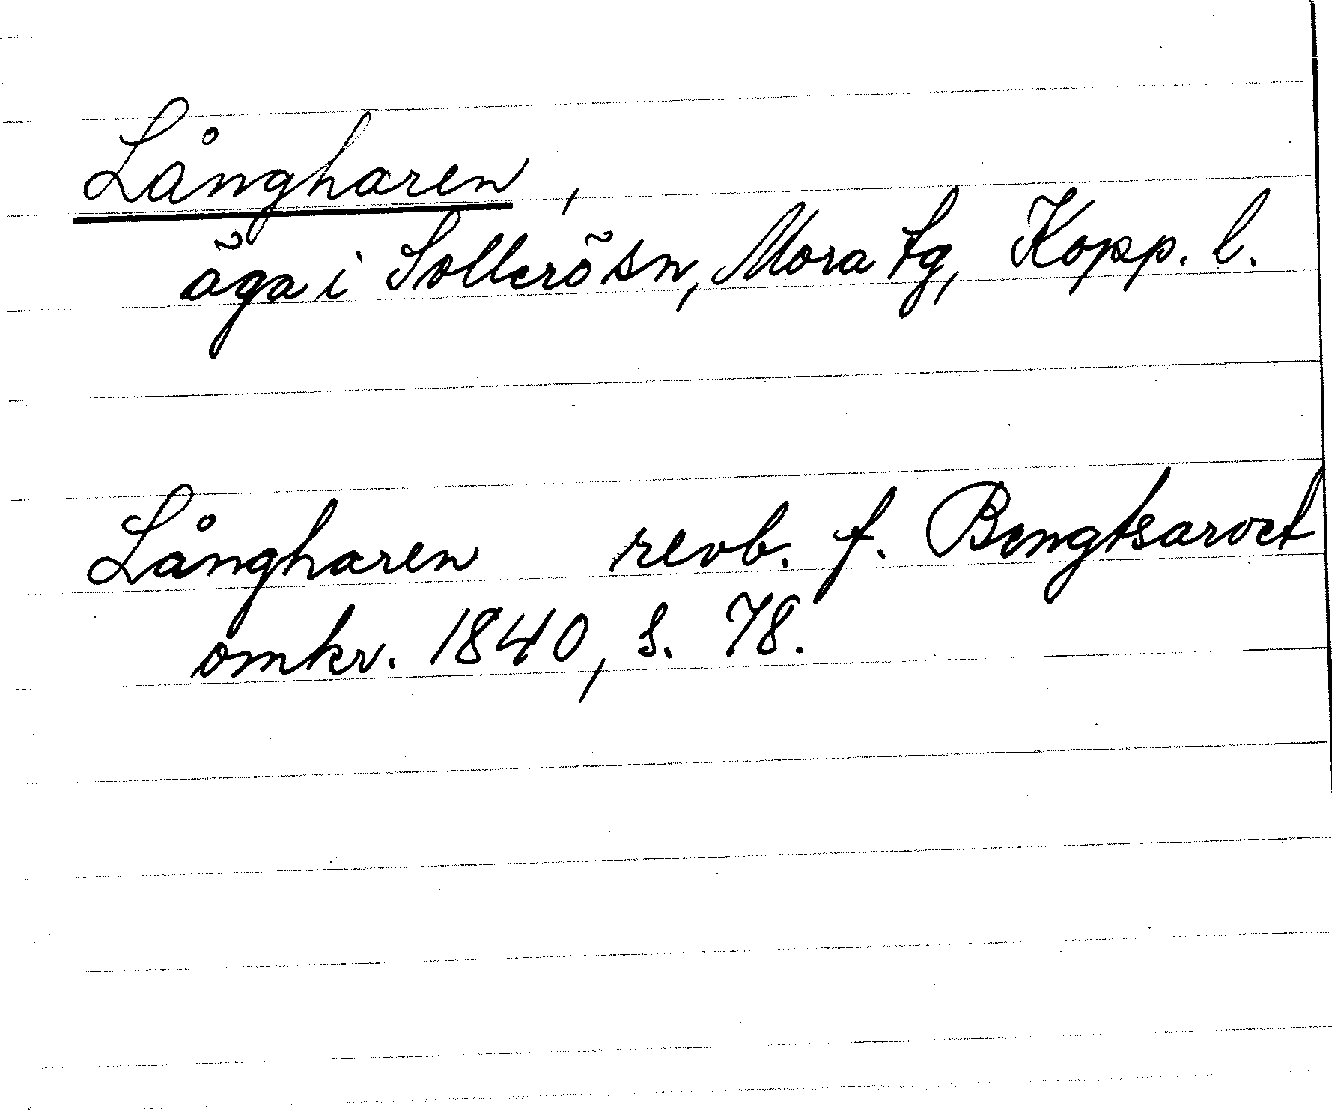 Långharen,
äga i Sollerö sn, Mora tg, Kopp. l.
Långharen revb. f. Bengtsarvet
omkr. 1840, s. 78.